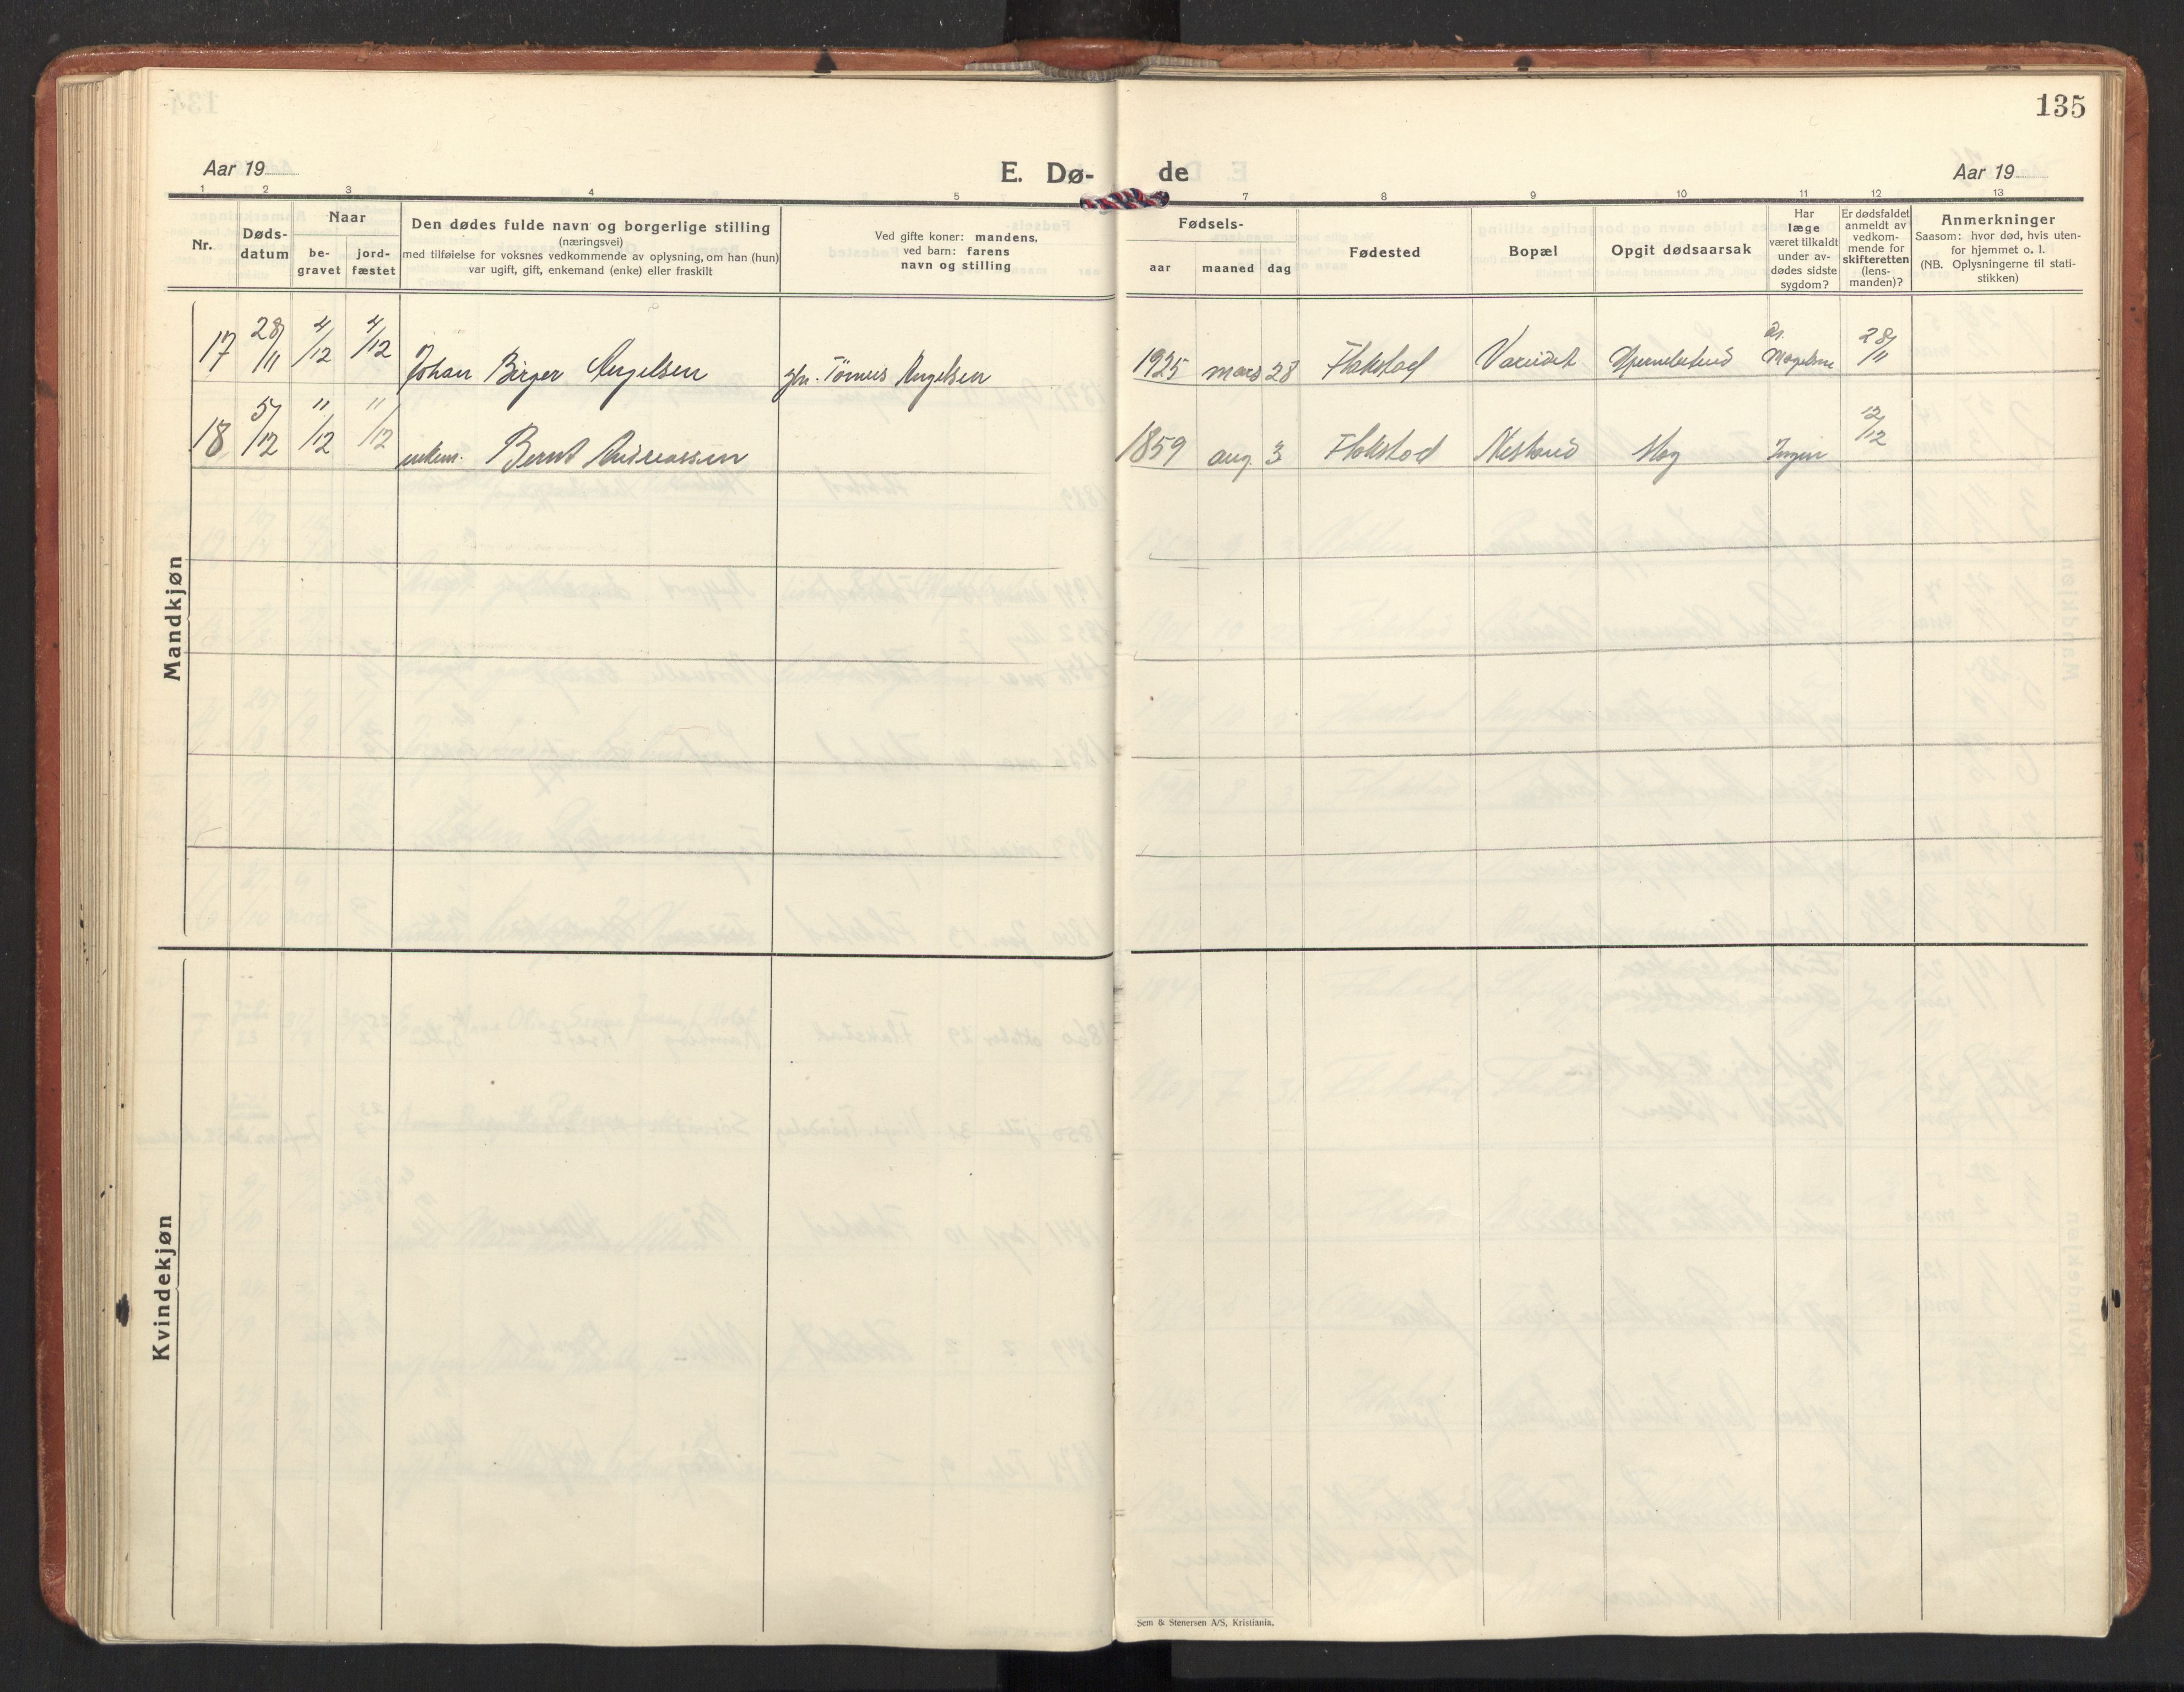 135
Aar 19
E. Dø-
de
Aar 19
1 2 3 4 5 7 8 9 10 11 12 13
Nr.
Døds-
datum
Naar
be-
gravet
jord-
fæstet
Den dødes fulde navn og borgerlige stilling
(næringsvei)
med tilføielse for voksnes vedkommende av oplysning, om han (hun)
var ugift, gift, enkemand (enke) eller fraskilt
Ved gifte koner: mandens,
ved barn: farens
navn og stilling
Fødsels-
aar
maaned
dag
Fødested
Bopæl
Opgit dødsaarsak
Har
læge
været tilkaldt
under av-
dødes sidste
sygdom?
Er dødsfaldet
anmeldt av
vedkom-
mende for
skifteretten
(lens-
manden)?
Anmerkninger
Saasom: hvor død, hvis uten-
for hjemmet o. l.
(NB. Oplysningerne til stati-
stikken)
Mandkjøn
17 28/11 4/12 4/12 Johan Birger Angelsen Angelsen 1925 mars 28 Flakstad Vareidet dr. 28/11
18 5/12 11/12 11/12 enkem. Bernt Andreassen 1859 aug. 3 Flakstad Nesland Slag Ingen 12/12
Kvindekjøn
Sem & Stenersen A/S, Kristiania.